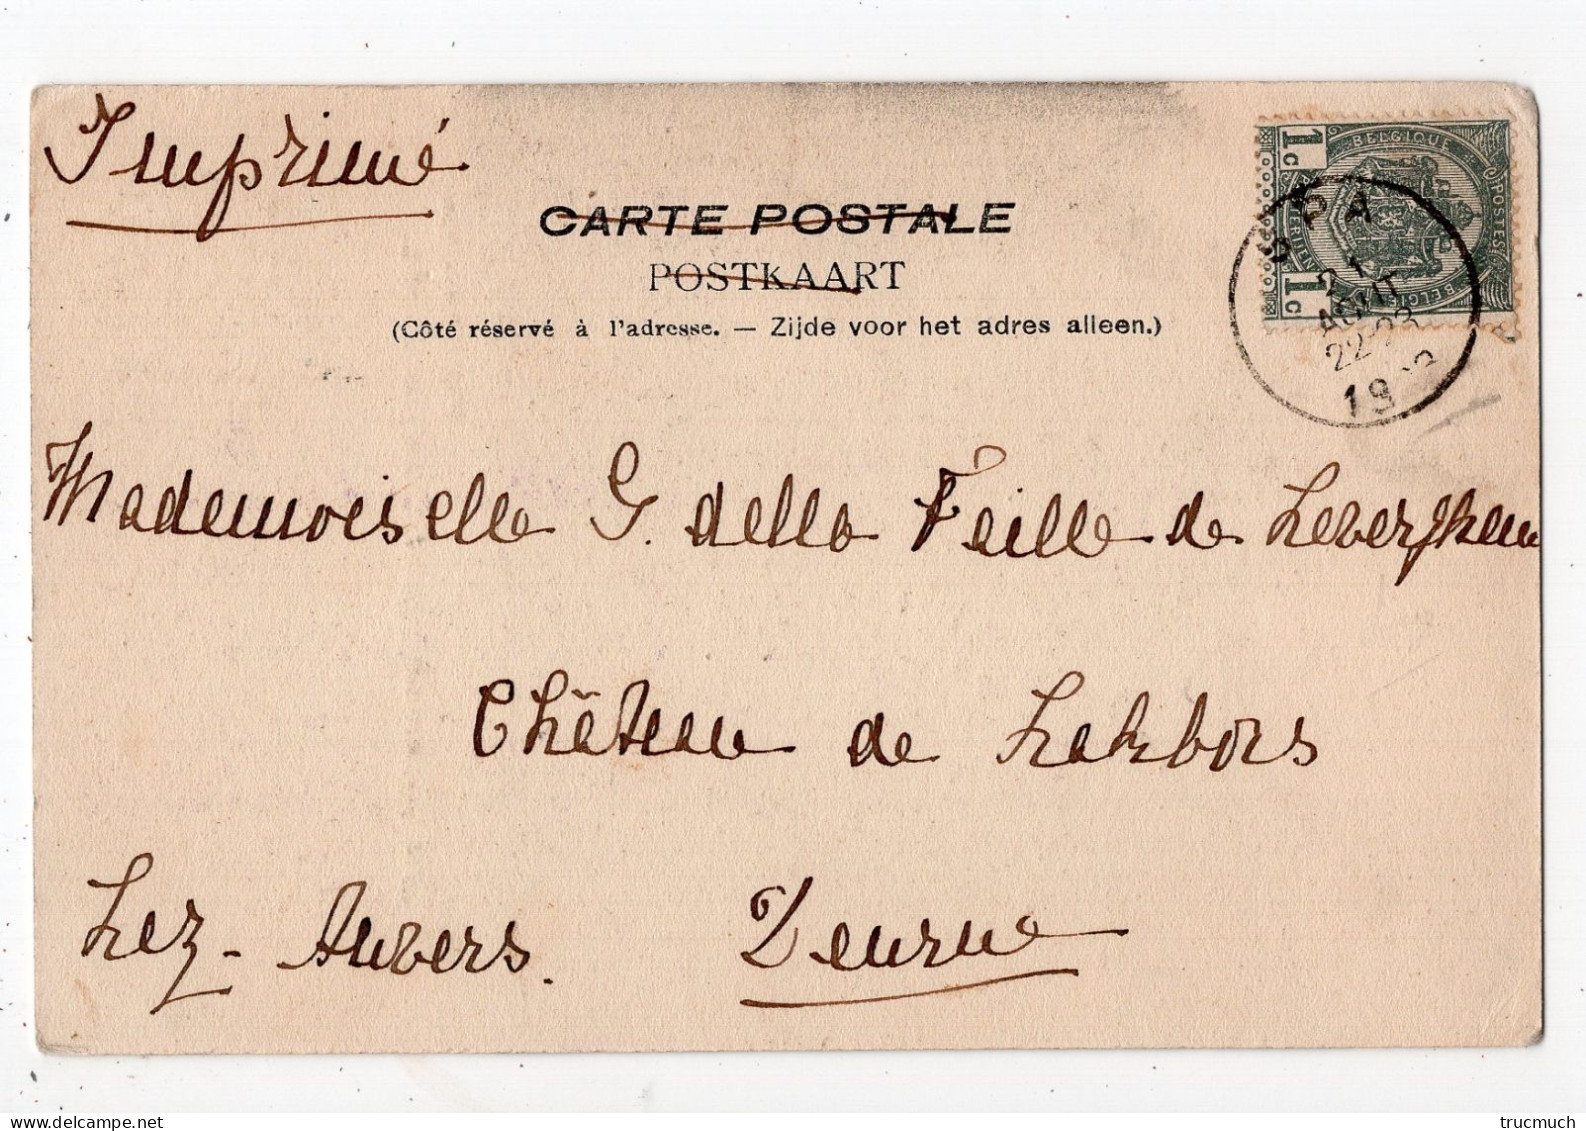 Imprimé
CARTE POSTALE
POSTKAART
(Côté réservé à l'adresse. — Zijde voor het adres alleen.)
1c BELGIQUE POSTES
1c BELGIË
SPA
21
AOUT
22-23
19
Mademoiselle G. della Faille de Leverghem
Château de Lakbors
Lez-Anvers. Deurne
trucmuch
delcampe.net